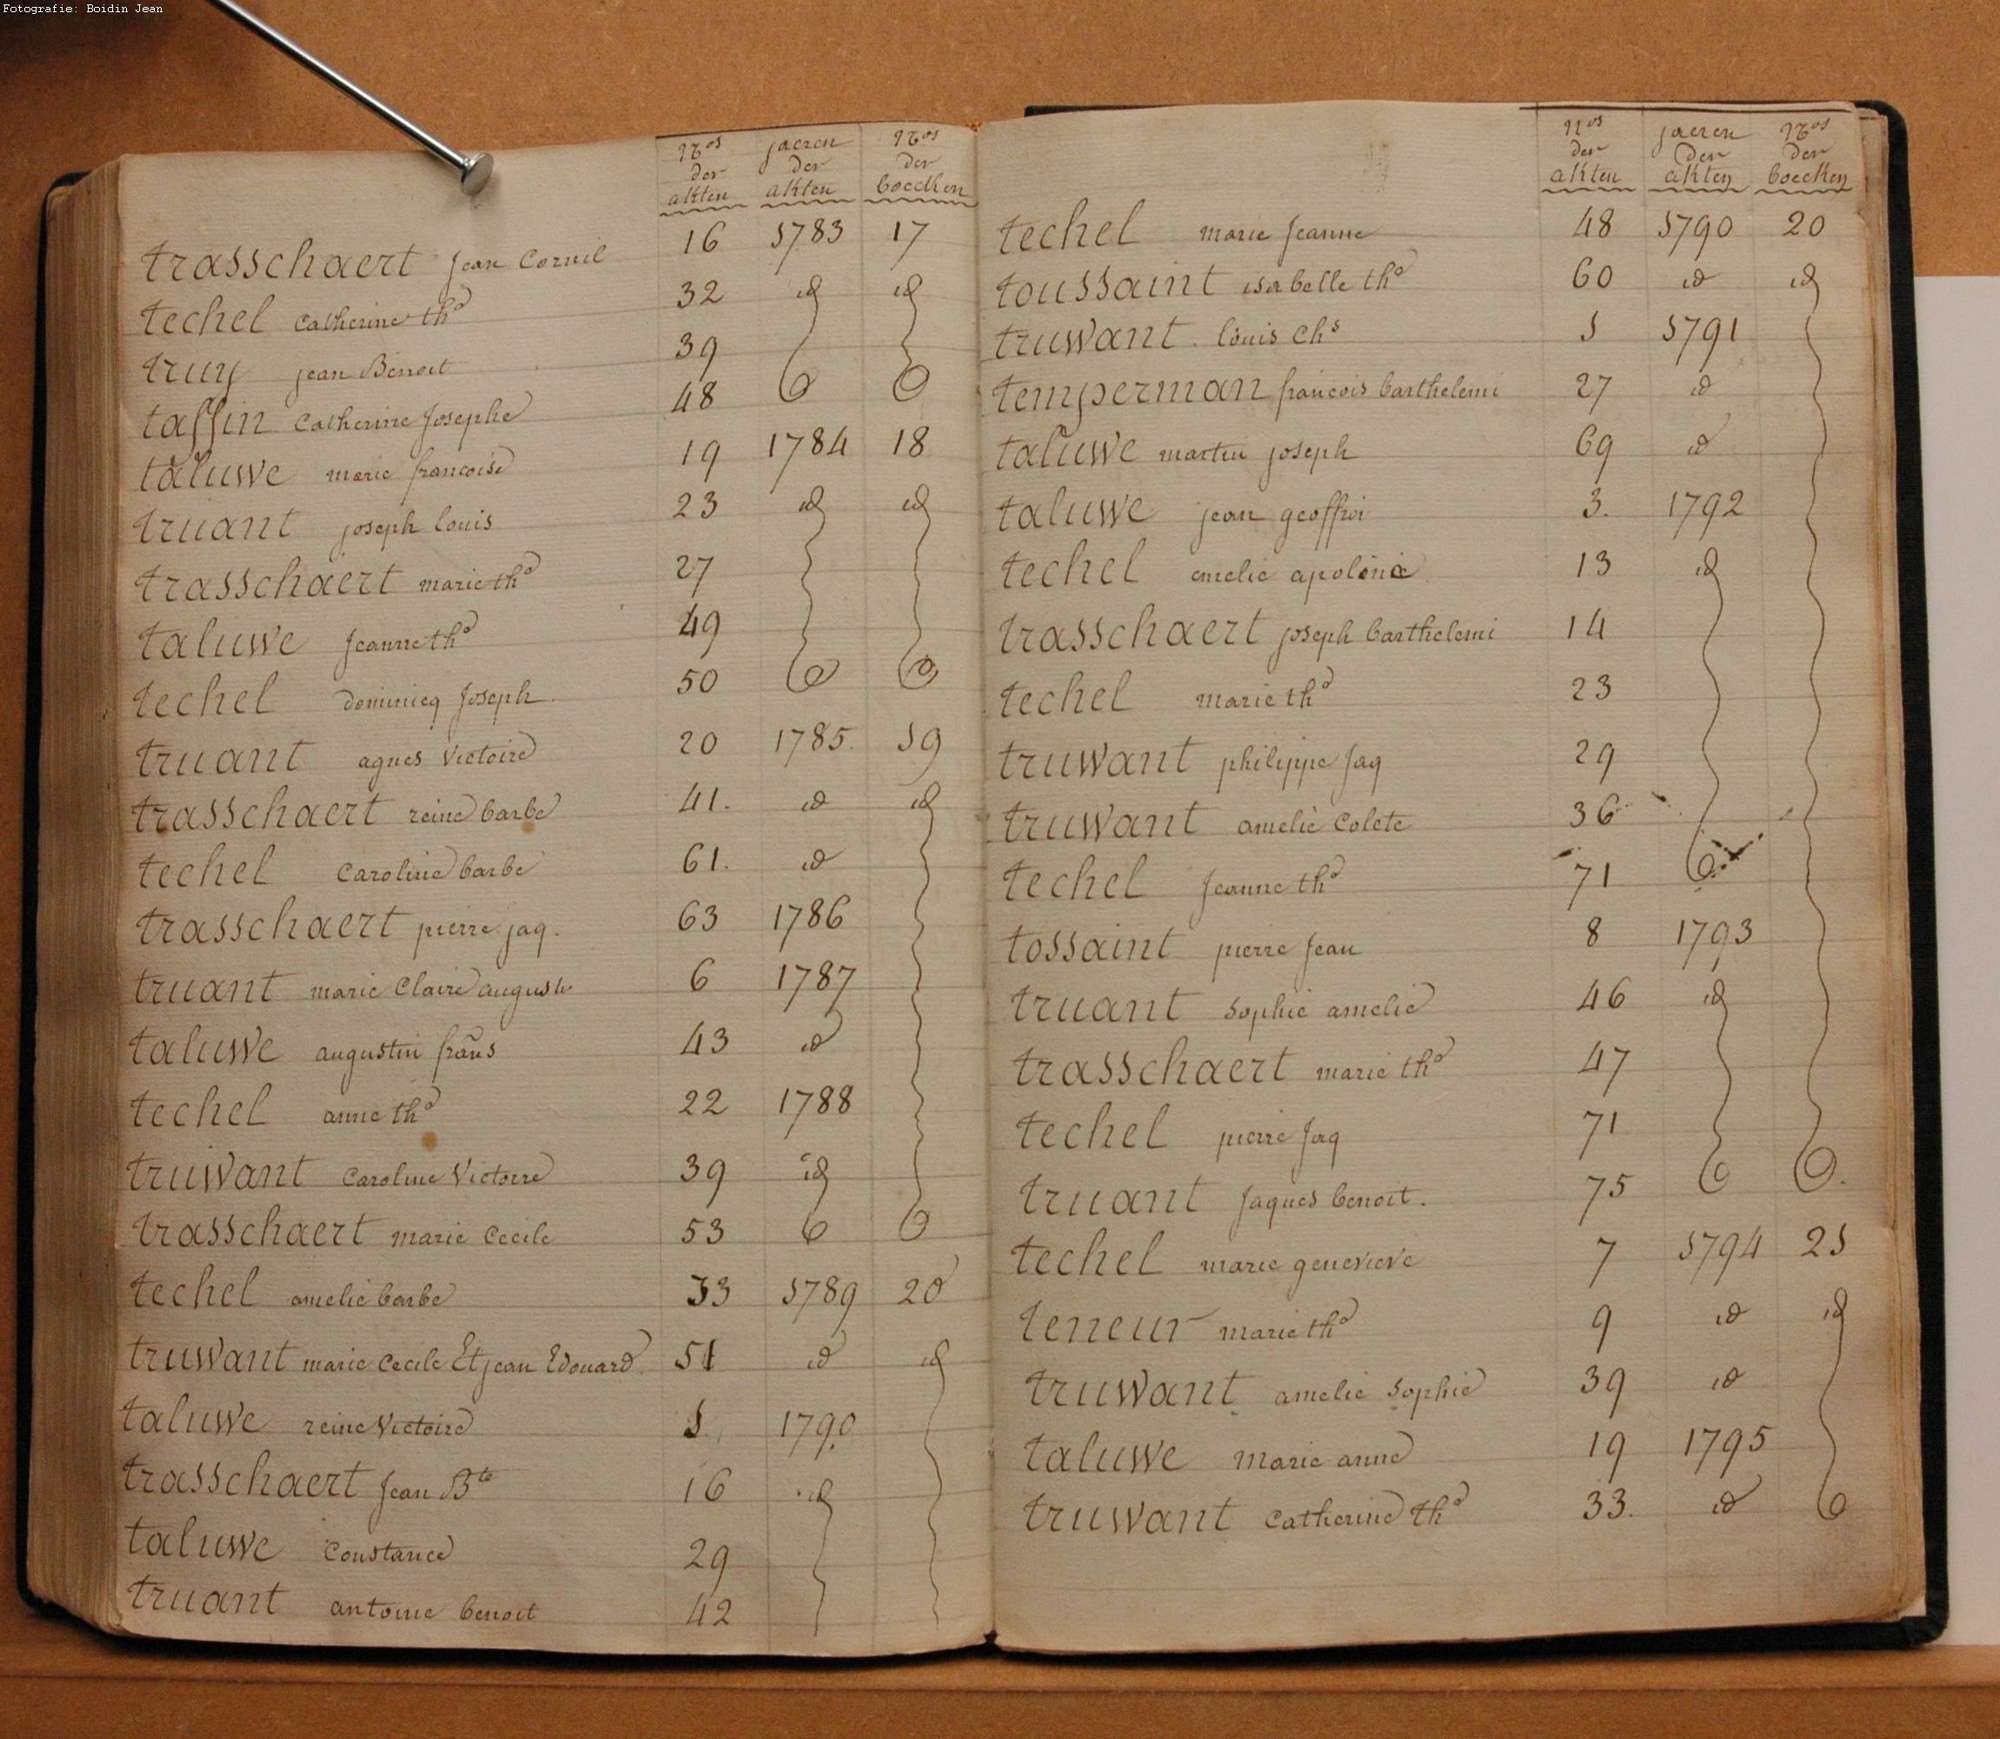 Fotografie: Boidin Jean
Nos der akten jaeren der akten Nos der boecken
trasschaert jean Cornil 16 1783 17
techel catherine the 32 id id
truy jean Benoit 39
taffin Catherine Josephe 48
taluwe marie francoise 19 1784 18
truant joseph louis 23 id id
trasschaert marie the 27
taluwe Jeanne the 49
techel dominicq Joseph 50
truant agnes Victoire 20 1785. 19
trasschaert reine barbe 41. id id
techel Caroline barbe 61. id
trasschaert pierre jaq. 63 1786
truant marie Claire auguste 6 1787
taluwe augustin frans 43 id
techel anne the 22 1788
truwant Caroline Victoire 39 id
trasschaert marie Cecile 53
techel amelie barbe 33 1789 20
truwant marie Cecile Et jean Edouard 51 id id
taluwe reine Victoire 1 1790
trasschaert Jean Bte 16 id
taluwe Constance 29
truant antoine benoit 42
Nos der akten jaeren der akten Nos der boecken
techel marie Jeanne 48 1790 20
toussaint isabelle the 60 id id
truwant louis Chs 1 1791
temperman francois barthelemi 27 id
taluwe martin joseph 69 id
taluwe jean geoffroi 3. 1792
techel emelie apolonie 13 id
trasschaert joseph barthelemi 14
techel marie the 23
truwant philippe jaq 29
truwant amelie Colete 36
techel Jeanne the 71
tossaint pierre Jean 8 1793
truant Sophie amelie 46 id
trasschaert marie the 47
techel pierre Jaq 71
truant Jaques benoit. 75
techel marie genevieve 7 1794 21
teneur marie the 9 id id
truwant amelie Sophie 39 id
taluwe marie anne 19 1795
truwant Catherine the 33. id